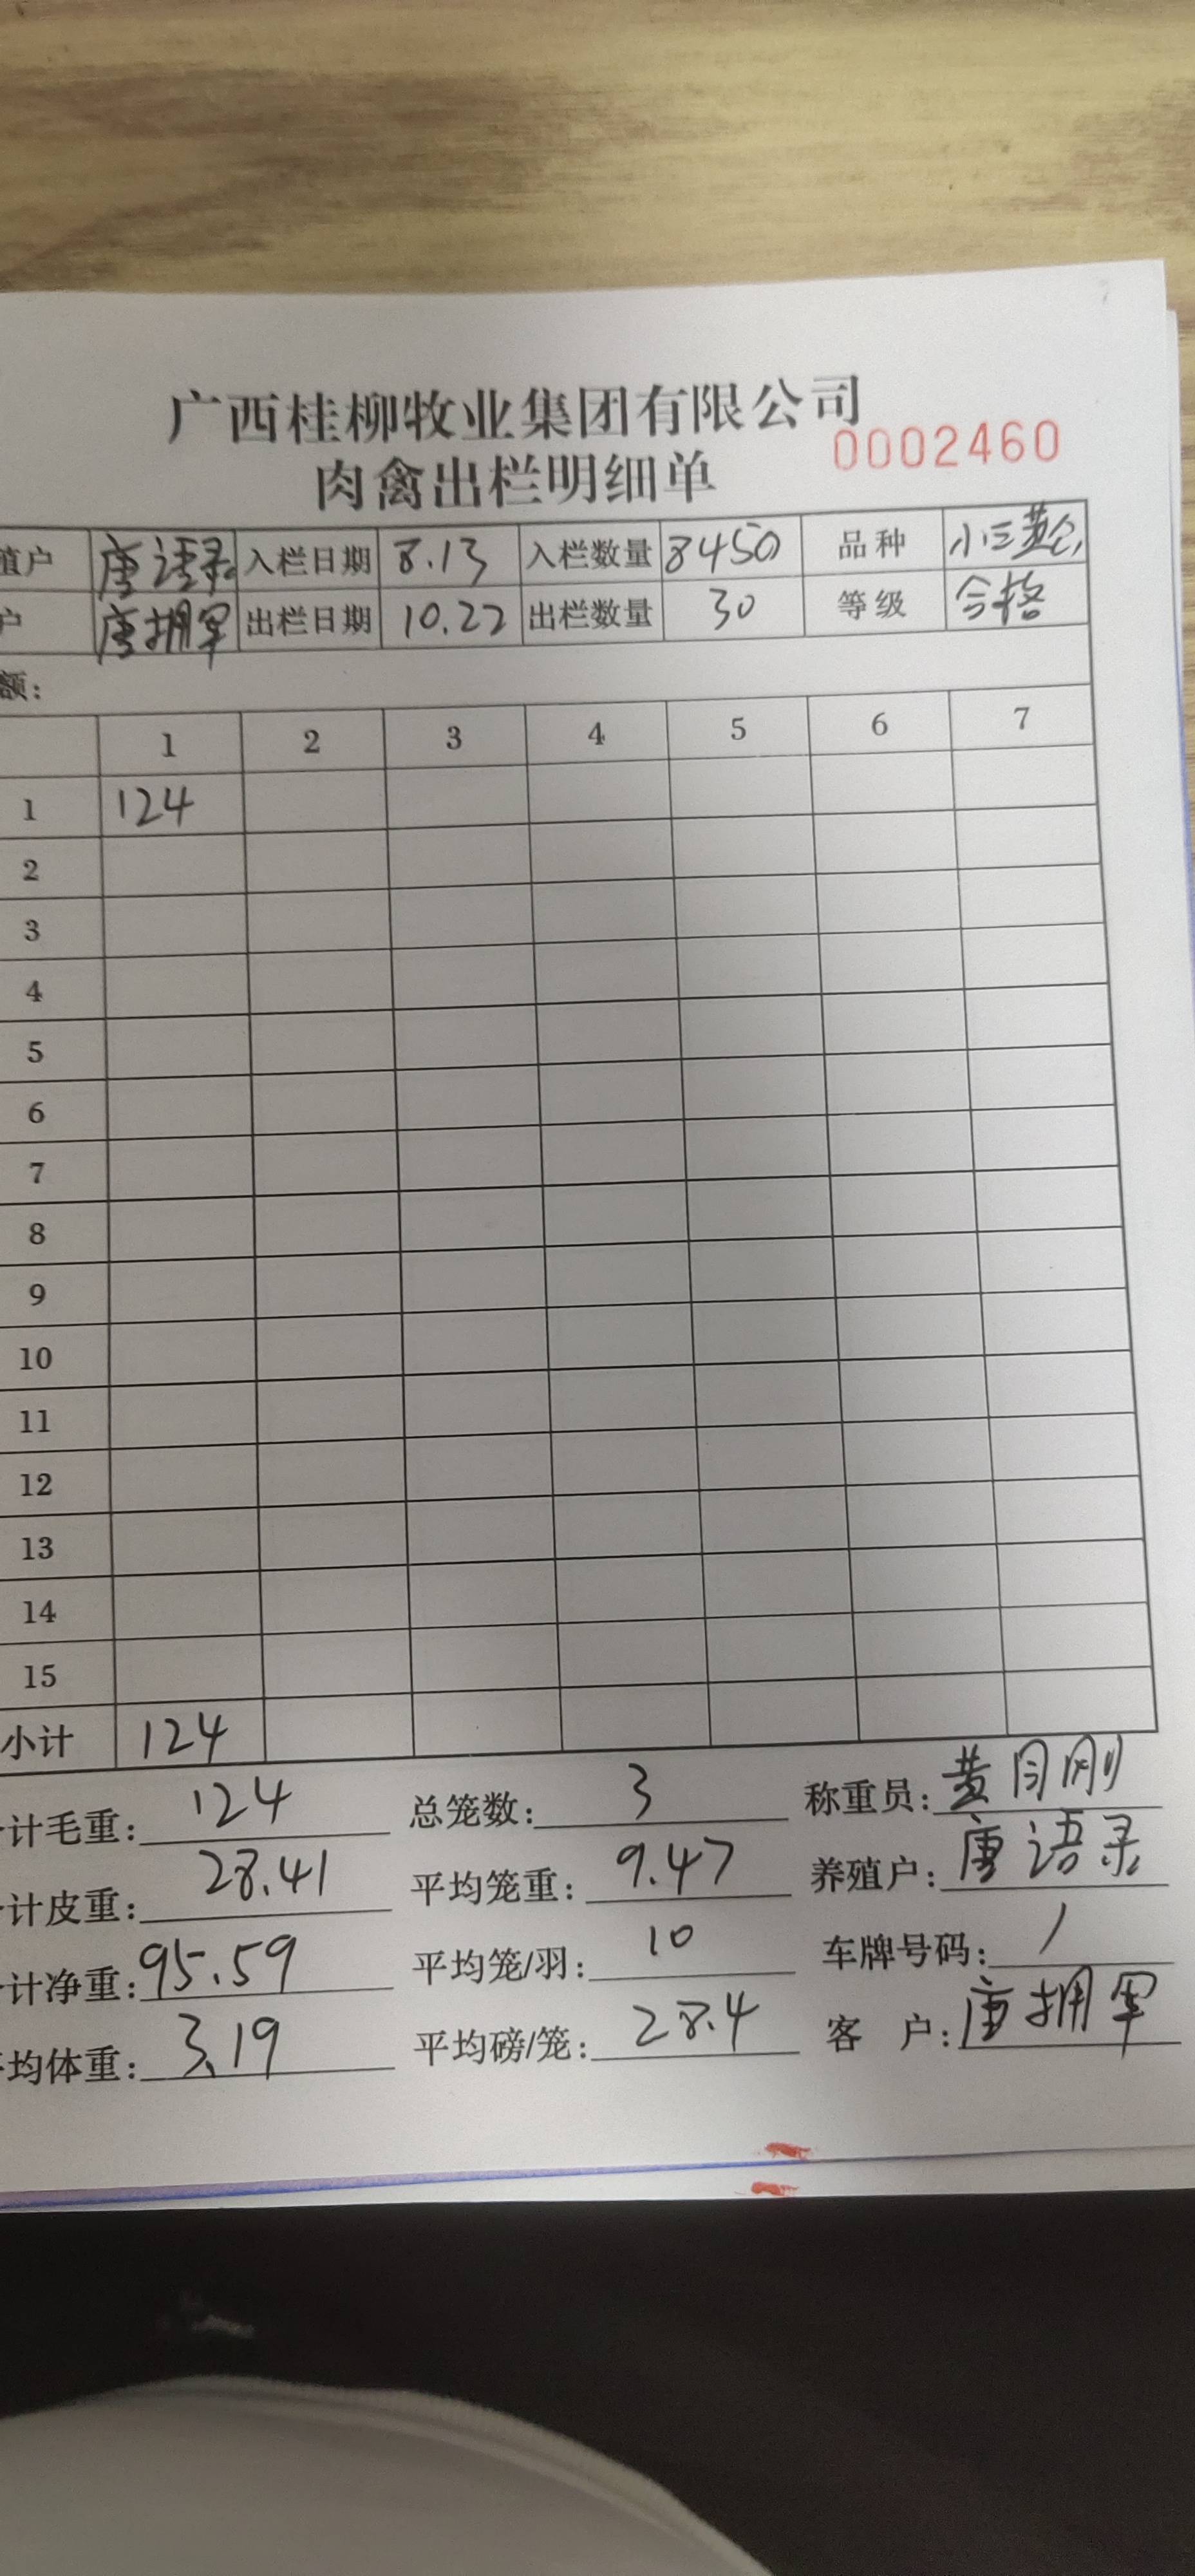 广西桂柳牧业集团有限公司
0002460
肉禽出栏明细单
殖户 唐语录 入栏日期 8.13 入栏数量 8450 品种 小三黄
户 唐拥军 出栏日期 10.22 出栏数量 30 等级 合格
额：
1 2 3 4 5 6 7
1 124
2
3
4
5
6
7
8
9
10
11
12
13
14
15
小计 124
计毛重：124 总笼数：3 称重员：黄月刚
计皮重：28.41 平均笼重：9.47 养殖户：唐语录
计净重：95.59 平均笼/羽：10 车牌号码：/
均体重：3.19 平均磅/笼：28.4 客 户：唐拥军